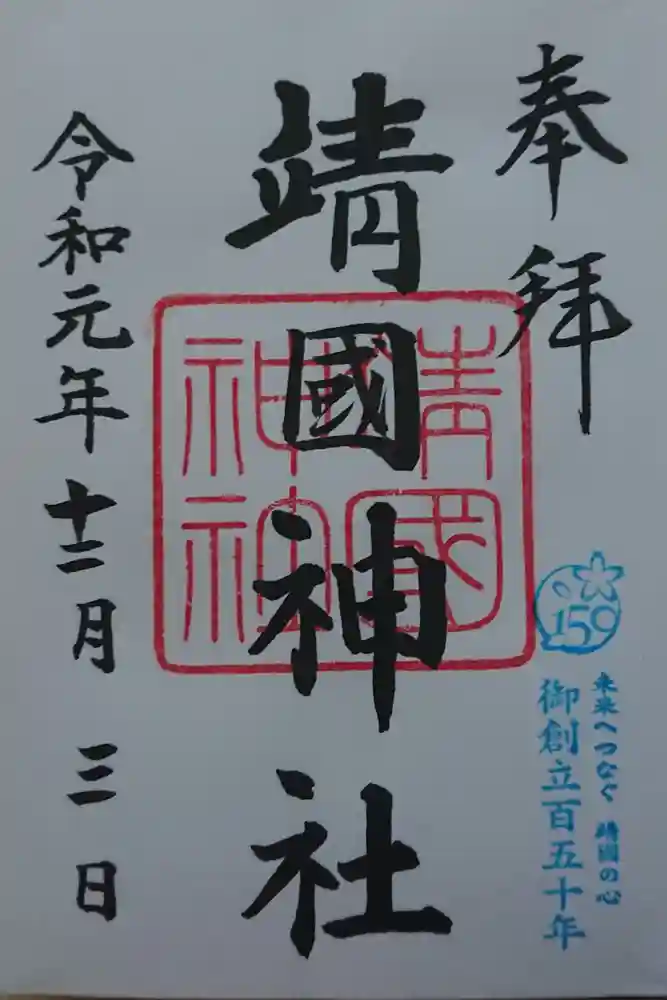 奉拝
靖國神社
靖國神社
令和元年十二月三日
150
未来へつなぐ 靖国の心
御創立百五十年